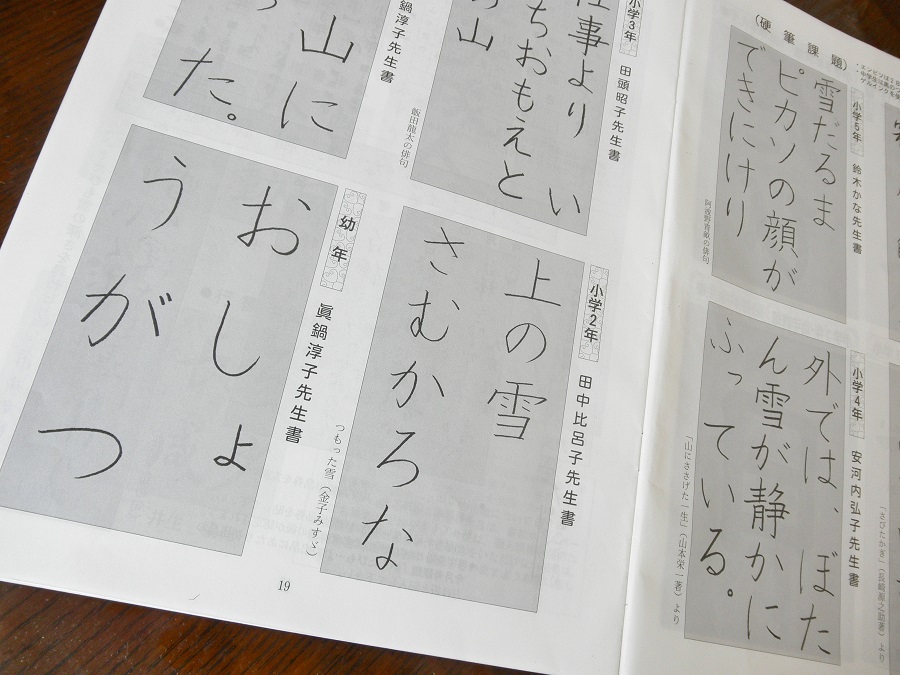 （硬筆課題）
小学5年
鈴木かな先生書
雪だるま
ピカソの顔が
できにけり
阿波野青畝の俳句
小学4年
安河内弘子先生書
外では、ぼた
ん雪が静かに
ふっている。
「山にささげた一生」（山本栄一著）より
「さびたかぎ」（長崎源之助著）より
小学3年
田頭昭子先生書
仕事より い
ちおもえと
の山
飯田龍太の俳句
小学2年
田中比呂子先生書
上の雪
さむかろな
つもった雪（金子みすゞ）
眞鍋淳子先生書
山に
た。
幼年
眞鍋淳子先生書
おしょ
うがつ
19